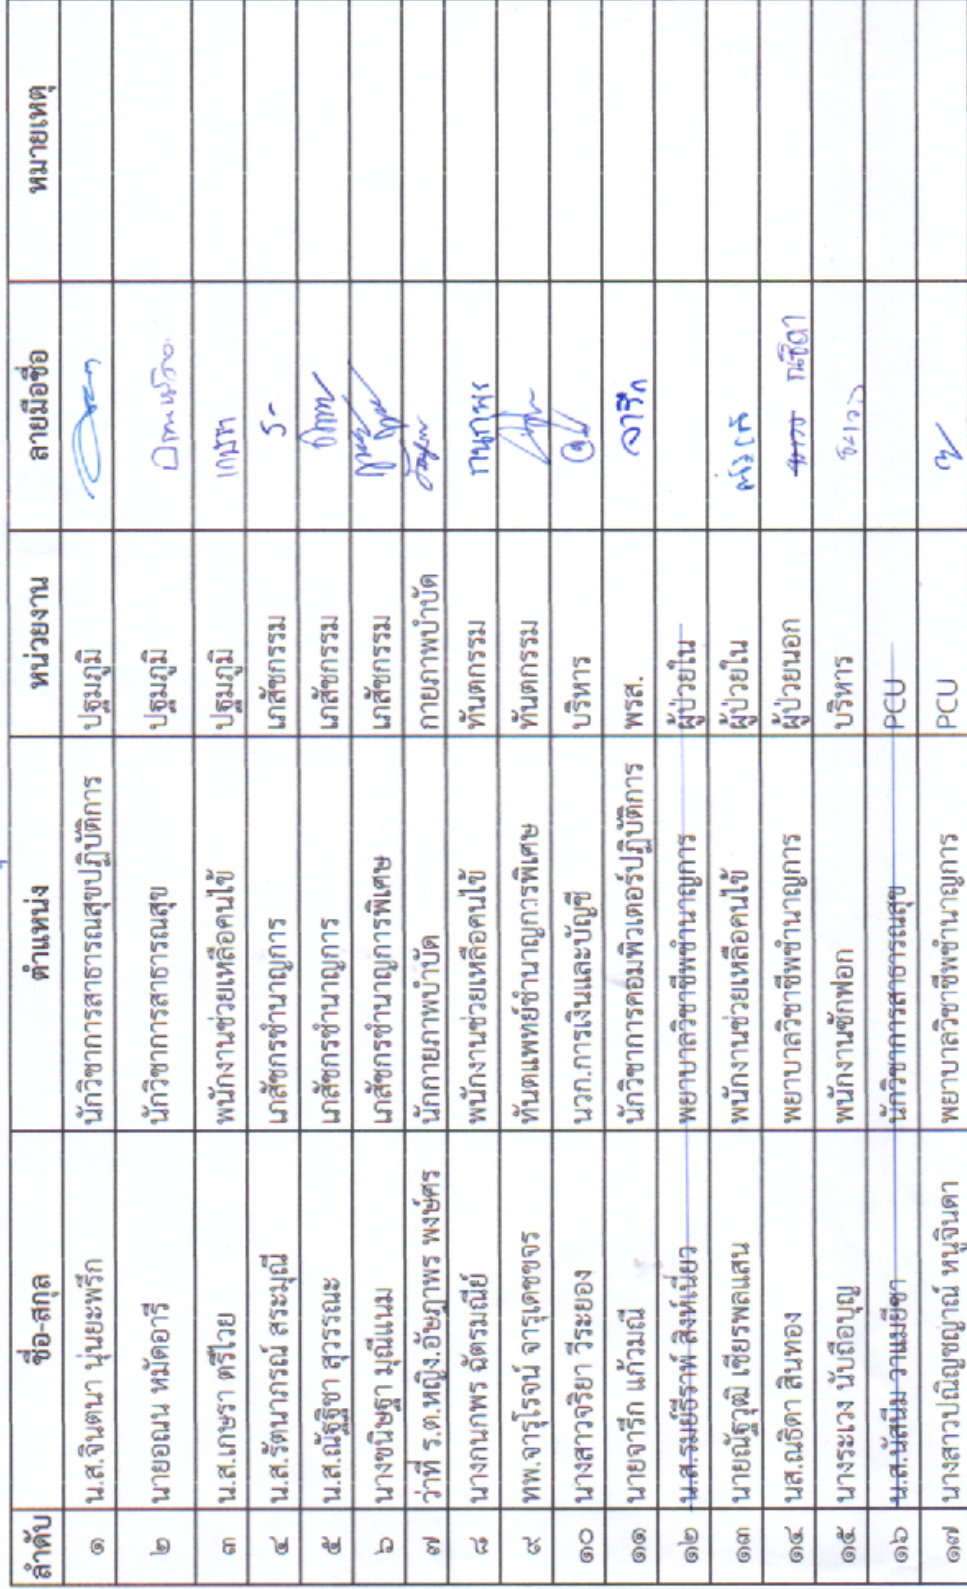 ลำดับ ชื่อ-สกุล ตำแหน่ง หน่วยงาน ลายมือชื่อ หมายเหตุ
๑ น.ส.จินตนา นุ่นยะพรึก นักวิชาการสาธารณสุขปฏิบัติการ ปฐมภูมิ
๒ นายอณน หมัดอารี นักวิชาการสาธารณสุข ปฐมภูมิ
๓ น.ส.เกษรา ตรีไวย พนักงานช่วยเหลือคนไข้ ปฐมภูมิ เกษรา
๔ น.ส.รัตนาภรณ์ สระมุณี เภสัชกรชำนาญการ เภสัชกรรม
๕ น.ส.ณัฐฐิชา สุวรรณะ เภสัชกรชำนาญการ เภสัชกรรม
๖ นางขนิษฐา มุณีแนม เภสัชกรชำนาญการพิเศษ เภสัชกรรม
๗ ว่าที่ ร.ต.หญิง.อัษฎาพร พงษ์ศร นักกายภาพบำบัด กายภาพบำบัด
๘ นางกนกพร ฉัตรมณีย์ พนักงานช่วยเหลือคนไข้ ทันตกรรม กนกพร
๙ ทพ.จารุโรจน์ จารุเดชขจร ทันตแพทย์ชำนาญการพิเศษ ทันตกรรม
๑๐ นางสาวจริยา วีระยอง นวก.การเงินและบัญชี บริหาร
๑๑ นายจารึก แก้วมณี นักวิชาการคอมพิวเตอร์ปฏิบัติการ พรส. จารึก
๑๒ น.ส.รมย์ธีราพ์ สิงห์เนี่ยว พยาบาลวิชาชีพชำนาญการ ผู้ป่วยใน
๑๓ นายณัฐวุฒิ เชียรพลแสน พนักงานช่วยเหลือคนไข้ ผู้ป่วยใน
๑๔ นส.ณธิดา สินทอง พยาบาลวิชาชีพชำนาญการ ผู้ป่วยนอก ณธิดา
๑๕ นางระเวง นับถือบุญ พนักงานซักฟอก บริหาร ระเวง
๑๖ น.ส.นัสนีม วาแมยีซา นักวิชาการสาธารณสุข PCU
๑๗ นางสาวปณิญชญาณ์ หนูจินดา พยาบาลวิชาชีพชำนาญการ PCU